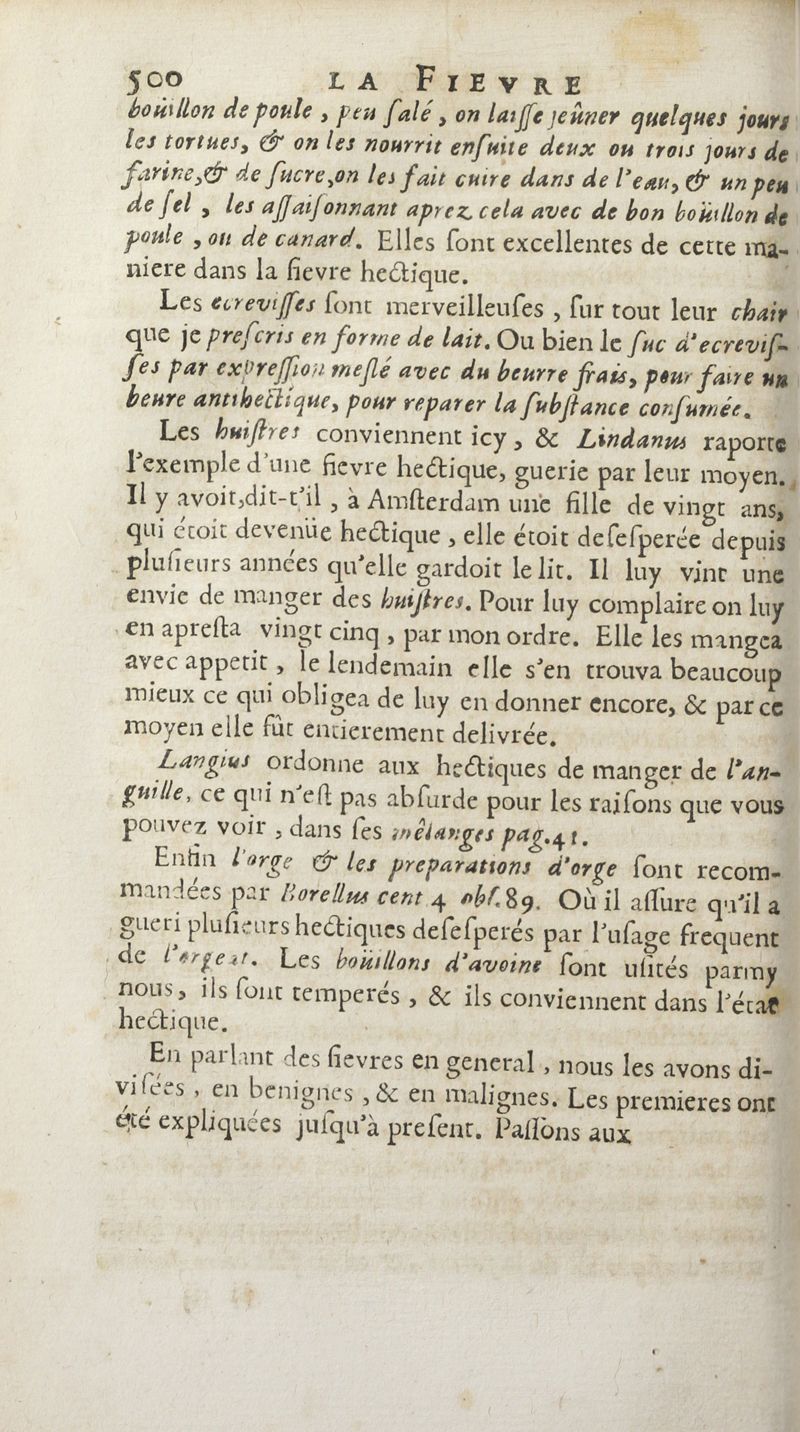 500 LA FIEVRE
boüillon de poule , peu ſalé , on laiſſe jeûner quelques jours
les tortues, & on les nourrit enſuite deux ou trois jours de
farine,& de ſucre,on les fait cuire dans de l'eau, & un peu
de ſel , les aſſaiſonnant aprez cela avec de bon boüillon de
poule , ou de canard. Elles ſont excellentes de cette ma-
niere dans la fievre hectique.
Les ecreviſſes ſont merveilleuſes , ſur tout leur chair
que je preſcris en forme de lait. Ou bien le ſuc d'ecreviſ-
ſes par expreſſion meſlé avec du beurre frais, pour faire un
beure antihectique, pour reparer la ſubſtance conſumée.
Les huiſtres conviennent icy, & Lindanus raporte
l'exemple d'une fievre hectique, guerie par leur moyen.
Il y avoit,dit-t'il , à Amſterdam une fille de vingt ans,
qui étoit devenüe hectique , elle étoit deſeſperée depuis
pluſieurs années qu'elle gardoit le lit. Il luy vint une
envie de manger des huiſtres. Pour luy complaire on luy
en apreſta vingt cinq , par mon ordre. Elle les mangea
avec appetit , le lendemain elle s'en trouva beaucoup
mieux ce qui obligea de luy en donner encore, & par ce
moyen elle fût entierement delivrée.
Langius ordonne aux hectiques de manger de l'an-
guille, ce qui n'eſt pas abſurde pour les raiſons que vous
pouvez voir , dans ſes mêlanges pag.41.
Enfin l'orge & les preparations d'orge ſont recom-
mandées par Borellus cent 4 obſ.89. Où il aſſure qu'il a
gueri pluſieurs hectiques deſeſperés par l'uſage frequent
de l'orgeat. Les boüillons d'avoine ſont uſités parmy
nous, ils ſont temperés , & ils conviennent dans l'état
hectique.
En parlant des fievres en general , nous les avons di-
viſées , en benignes , & en malignes. Les premieres ont
été expliquées juſqu'à preſent. Paſſons aux